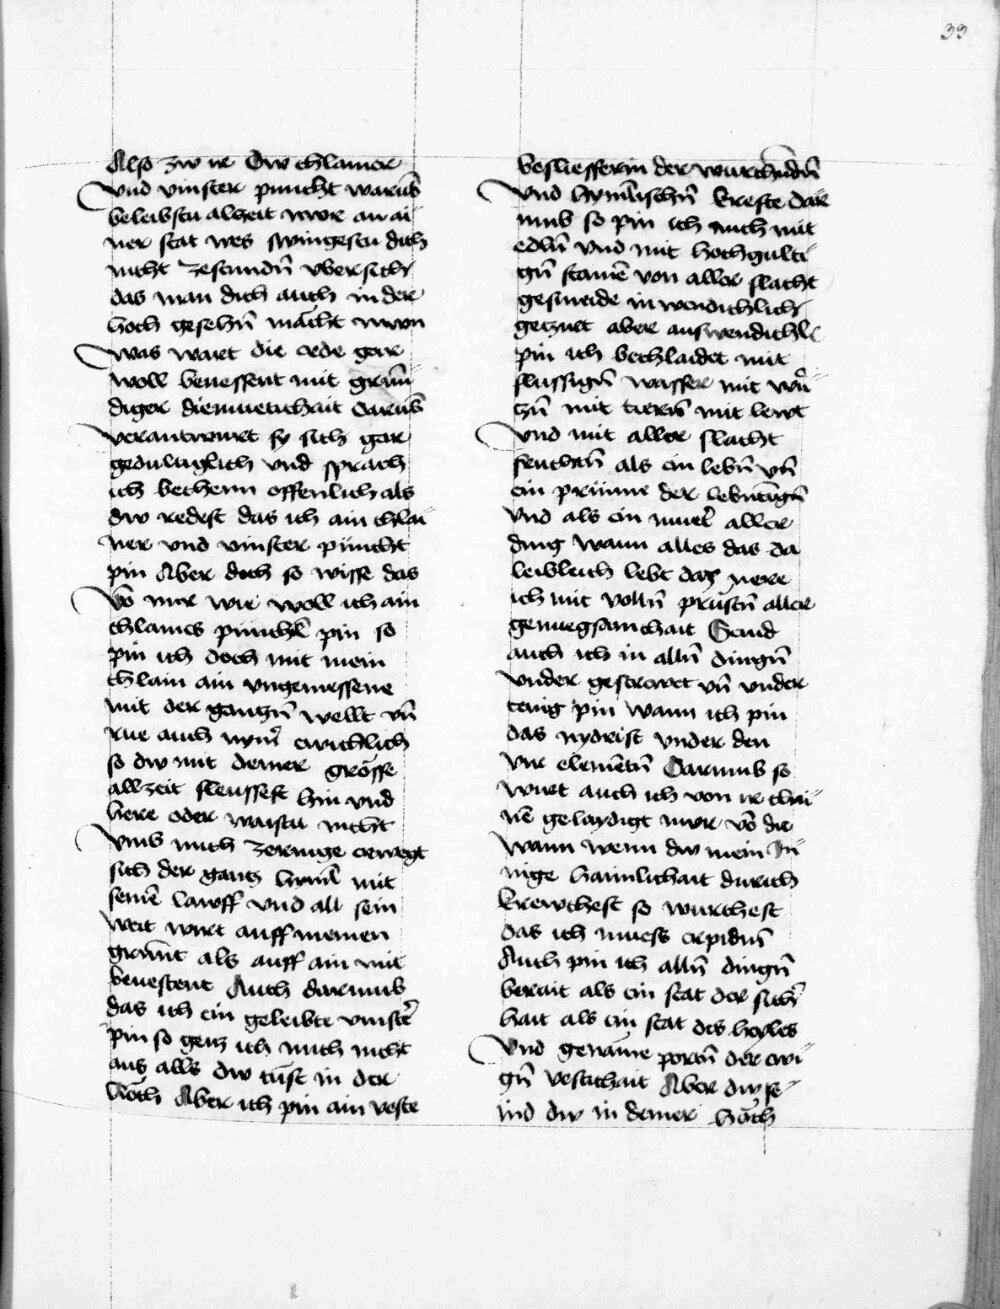 33
Also zw ir Ow chlainer
vnd vinster puncht warub̄
beleibstu alzeit nwr an ai
ner stat wes swingestu dich
nicht zestundn̄ vbersich
das man dich auch in der
hoch gesehn̄ mācht nwn
was wart die erde gar
woll beuessent mit grūn
diger diemuetichait Darub̄
verantwurt sy sich gar
gedultiglich vnd sprach
ich bechenn offenlich als
dw redest das ich ain chlai
ner vnd vinster puncht
pin Aber doch so wisse das
vō mir wie woll ich ain
chlaines punchtl pin so
pin ich doch mit mein
chlain ain vngemessene
mit der gantzn̄ wellt vn̄
rue auch nym̄ ewichlich
so dw mit deiner grösse
allzeit fleussest hin vnd
here oder waistu nicht
vmb mich zeringe erwegt
sich der gantz hymel mit
seinē lawff vnd all sein
weit wirt auff meinen
grūnt als auff ain mit
beuestent Auch darumb
das ich ein geleibte vinster
pin so geuz ich mich nicht
aus alls dw tūst in der
hōch Aber ich pin ain veste
besliesserin der wurchūdn̄
vnd hymlischn̄ kreste dar
umb so pin ich auch mit
edln̄ vnd mit hochgulti
gn̄ stainē von aller slacht
gesmeide inwendichlich
geziert aber auswendichl
pin ich bechlaidet mit
flussign̄ wasser mit wu
rzn̄ mit tiern̄ mit lewt
vnd mit aller slacht
fruchtn̄ als ein lebn̄ vn̄
ein prunne der lebntign̄
vnd als ein mueter aller
ding wann alles das da
leibleich lebt daz nere
ich mit volln̄ prustn̄ aller
genuegsamchait Seind
auch ich in alln̄ dingn̄
vnder gestrewet vn̄ vnder
tenig pin wann ich pin
das nydrist vnder den
vir elemētn̄ Darumb so
wirt auch ich von ir chai
nē gelaydigt nwr vō die
wann wenn dw mein In
nige haimlichait durich
krewchest so wurchest
das ich muess erpidm̄
Auch pin ich alln̄ dingn̄
berait als ein stat der sicher
hait als ein stat des heyles
vnd genāme portn̄ der ewi
gn̄ vesticha​it Aber dw se
ind dw in deiner hāch